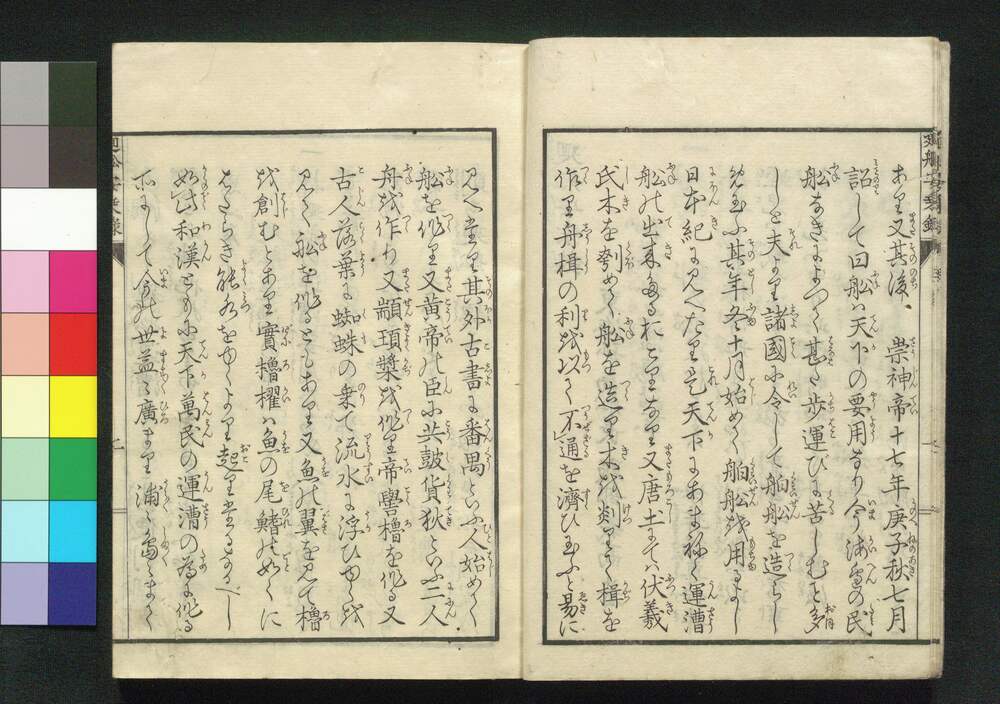 あり又其後 崇神帝十七年庚子秋七月
詔して曰船ハ天下の要用なり今海邊の民
船なきによつて甚た歩運びに苦しむと
しと夫より諸國に令して舶船を造らし
其年冬十月始めて舶船を用よし
日本紀に見へたり是天下にあまねく運漕
船の出来る又唐土にてハ伏羲
氏木を刳めて船を造り木を剡りて楫を
作り舟楫の利を以て不通を濟ひ玉ふと易に
見へたり其外古書に番禺といふ人始めて
船を作り又黄帝の臣に共鼓貨狄といふ二人
舟を作り又顓頊槳を作り帝嚳櫓を作る又
古人落葉に蜘蛛の乗て流水に浮ひゆくを
見て船を作るともあり又魚の翼を見て櫓
を創むとあり實櫓櫂ハ魚の尾鰭の如くに
はたらき能水をゆくより起りたるなるべし
如此和漢ともに天下萬民の運漕の為に作る
所にして今の世益々廣まり浦々島々まて
廻船安乗録